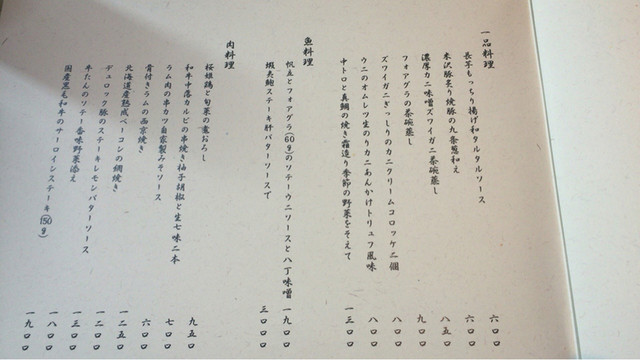 一品料理
長芋もっちり揚げ和タルタルソース 六〇〇
米沢豚炙り焼豚の九条葱和え 六〇〇
濃厚カニ味噌ズワイガニ茶碗蒸し 八五〇
フォアグラの茶碗蒸し 九〇〇
ズワイガニぎっしりのカニクリームコロッケ二個 八〇〇
ウニのオムレツ生のりカニあんかけトリュフ風味 八〇〇
中トロと真鯛の焼き霜造り季節の野菜をそえて 一三〇〇
魚料理
帆立とフォアグラ(60g)のソテーウニソースと八丁味噌 一九〇〇
蝦夷鮑ステーキ肝バターソースで 三〇〇〇
肉料理
桜姫鶏と旬菜の霙おろし 九五〇
和牛中落カルビの串焼き柚子胡椒と生七味二本 七〇〇
ラム肉の串カツ自家製みそソース 六〇〇
骨付きラムの西京焼き 一二五〇
北海道産熟成ベーコンの網焼き 一二〇〇
デュロック豚のステーキレモンバターソース 一三〇〇
牛たんのソテー香味野菜添え 一八〇〇
国産黒毛和牛のサーロインステーキ(150g) 一九〇〇